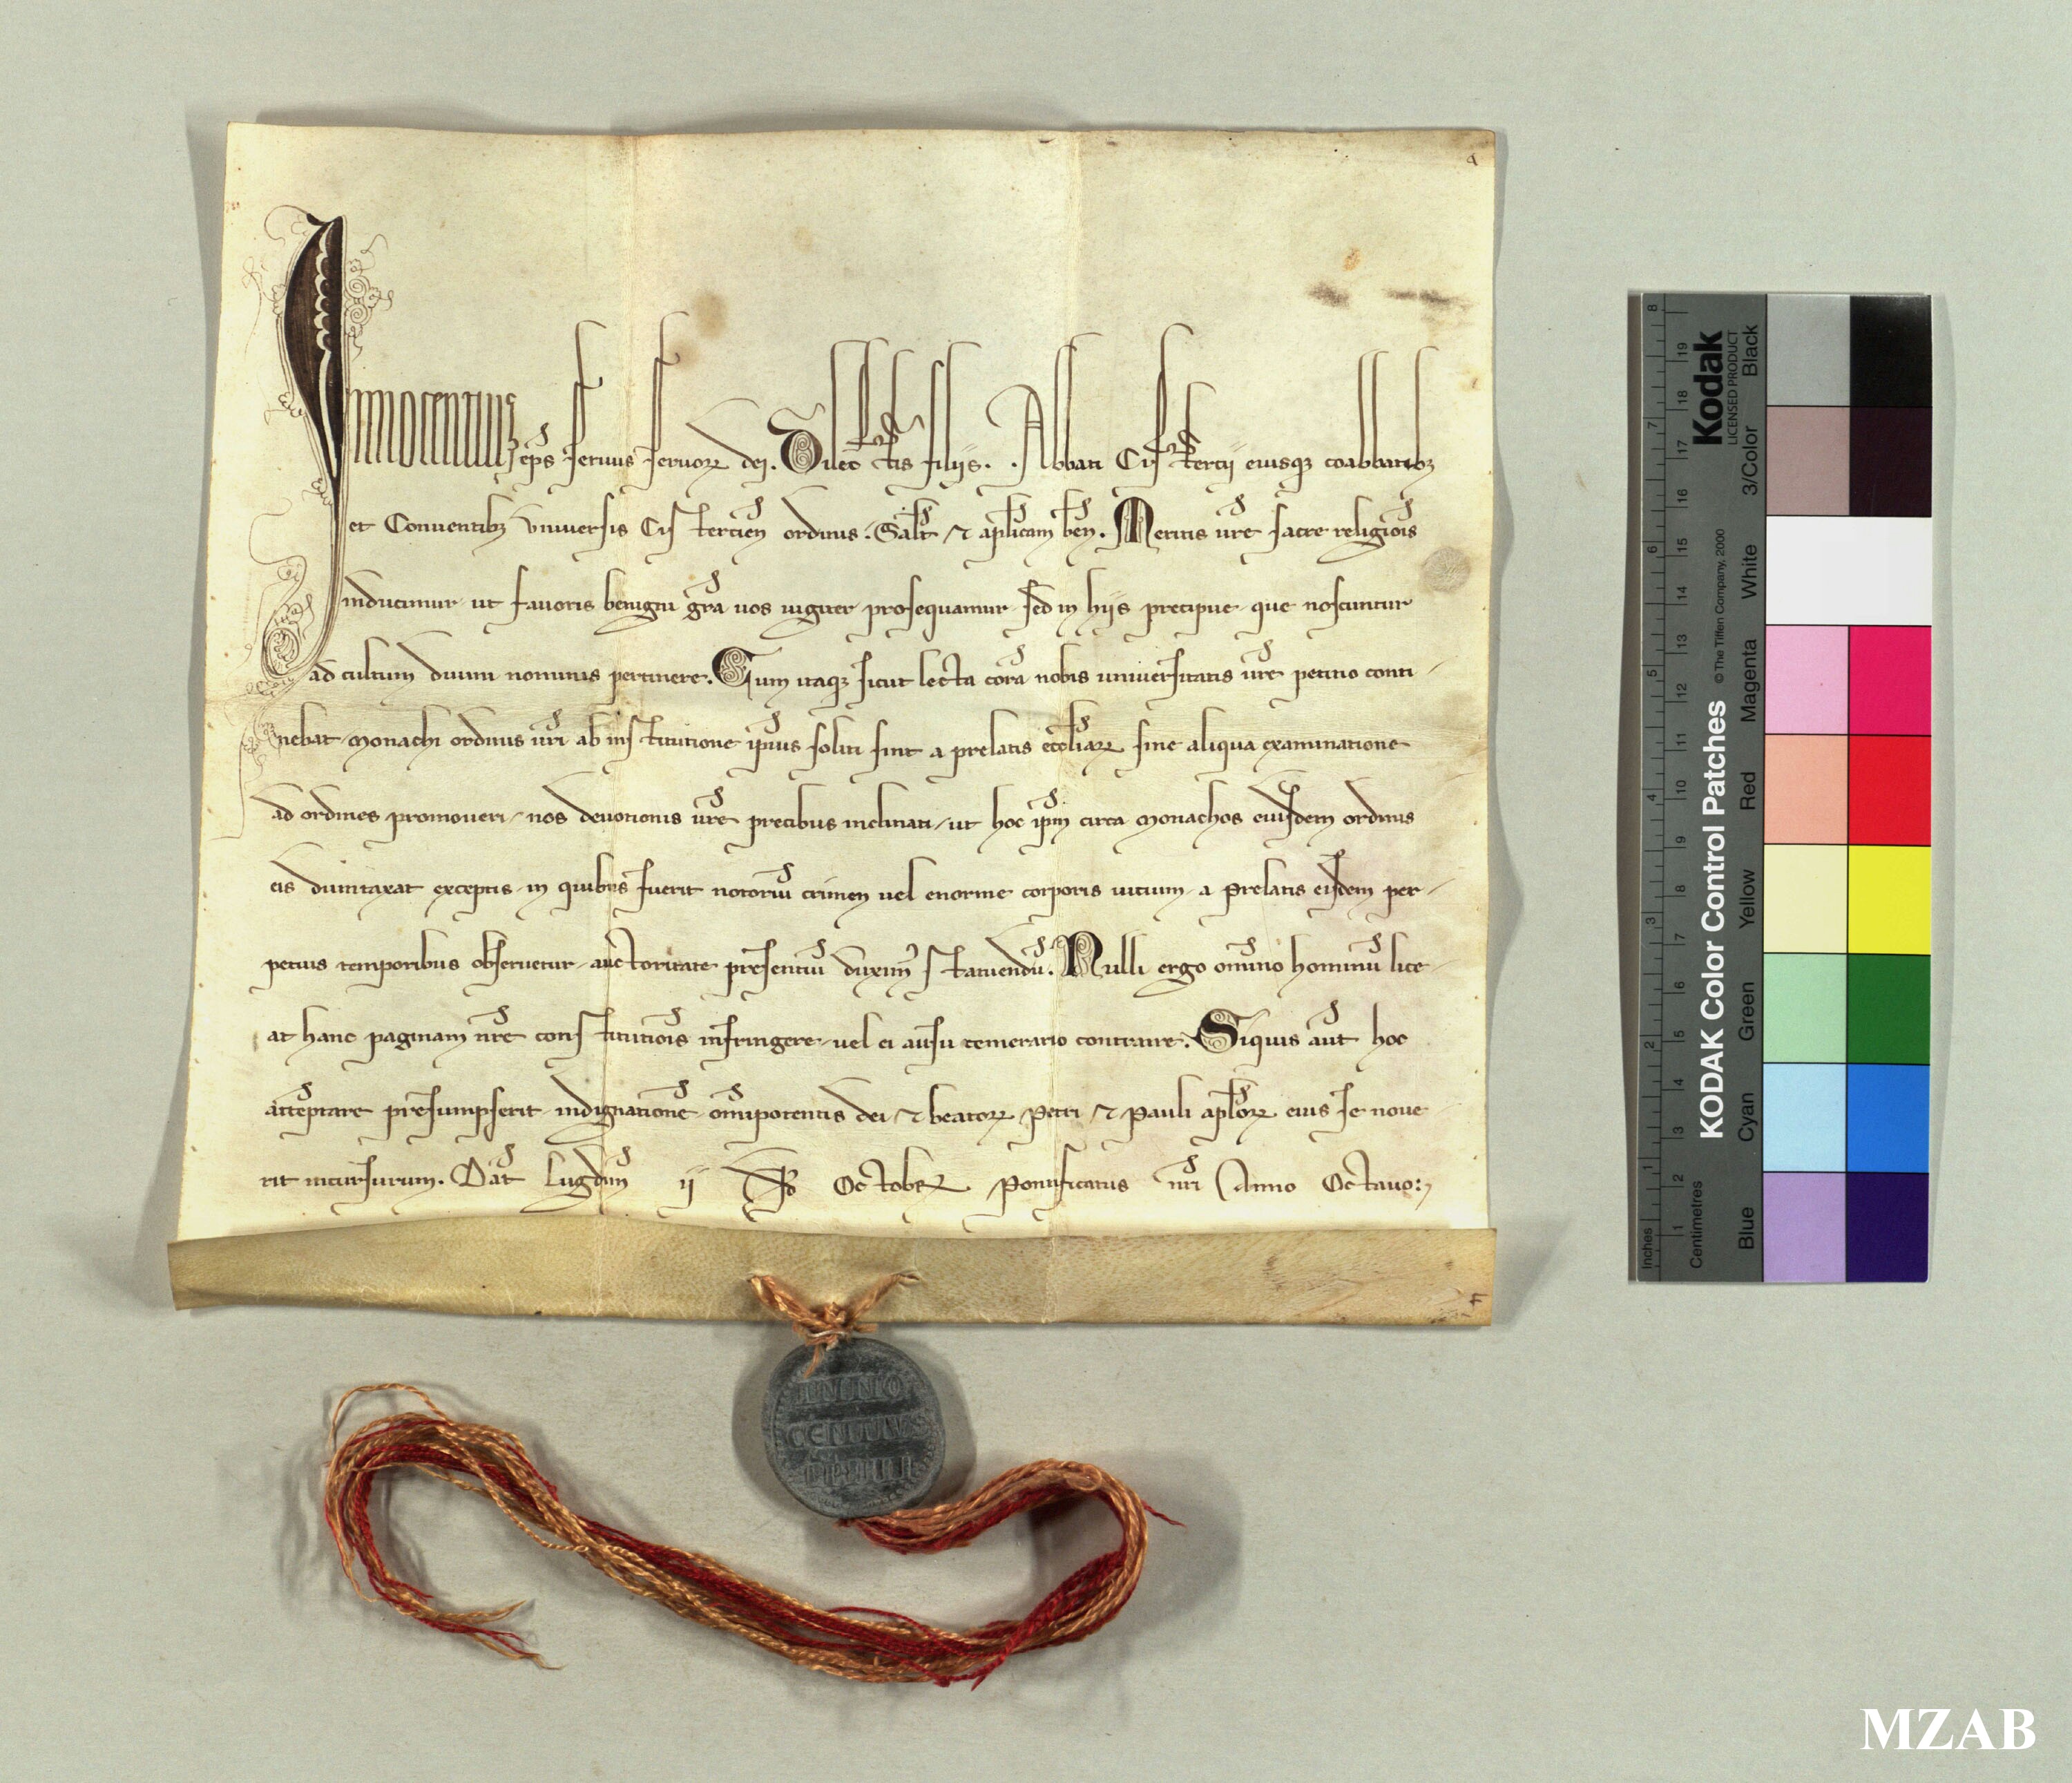 Innocentius eps seruus seruoꝝ dei. Dilectis filiis. Abbati Cistercii eiusqꝫ coabbatibꝫ
et Conuentibꝫ vniuersis Cistercieñ ordinis. Salt̃ ⁊ aplicam beñ. Meritis ur̃e sacre religiois
inducimur ut fauoris benigni gr̃a uos iugiter prosequamur sed in hiis precipue que noscuntur
ad cultum diuini nominis pertinere. Cum itaqꝫ sicut lecta corã nobis uniuersitatis ur̃e petitio conti-
nebat monachi ordinis ur̃i ab institutione ip̃ius soliti sint a prelatis eccl̃iaꝝ sine aliqua examinatione
ad ordines promoueri nos deuotionis ur̃e precibus inclinati ut hoc ip̃m circa monachos eiusdem ordinis
eis duintaxat exceptis in quibus fuerit notoriũ crimen uel enorme corporis uitium a prelatis eisdem per-
petuis temporibus obseruetur auctoritate presentiũ duxim᷒ statuendũ. Nulli ergo om̃ino hominũ lice-
at hanc paginam nr̃e constitutiõis infringere uel ei ausu temerario contraire. Siquis aut̃ hoc
attẽptare presumpserit indignationẽ om̃ipotentis dei ⁊ beatoꝝ Petri ⁊ Pauli apl̃oꝝ eius se noue-
rit incursurum. Dat̃ Lugduñ ij Id Octobꝝ Pontificatus nr̃i Anno Octauo
INNO
CENTIVS
PP IIII
Kodak
LICENSED PRODUCT
KODAK Color Control Patches
© The Tiffen Company, 2000
Blue Cyan Green Yellow Red Magenta White 3/Color Black
Inches 1 2 3 4 5 6 7 8
Centimetres 1 2 3 4 5 6 7 8 9 10 11 12 13 14 15 16 17 18 19
MZAB